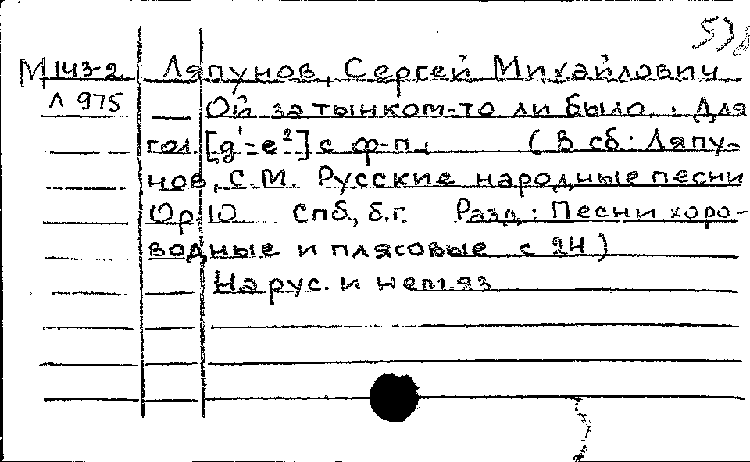 М 143-2 Ляпунов, Сергей Михайлович
Л 975 Ой за тынком-то ли было. Для
гол. [g¹-e²] с ф-п. (В сб: Ляпу-
нов, С.М. Русские народные песни
Ор. 10 Спб, б.г. Разд: Песни хоро-
водные и плясовые с 24)
На рус. и нем. яз